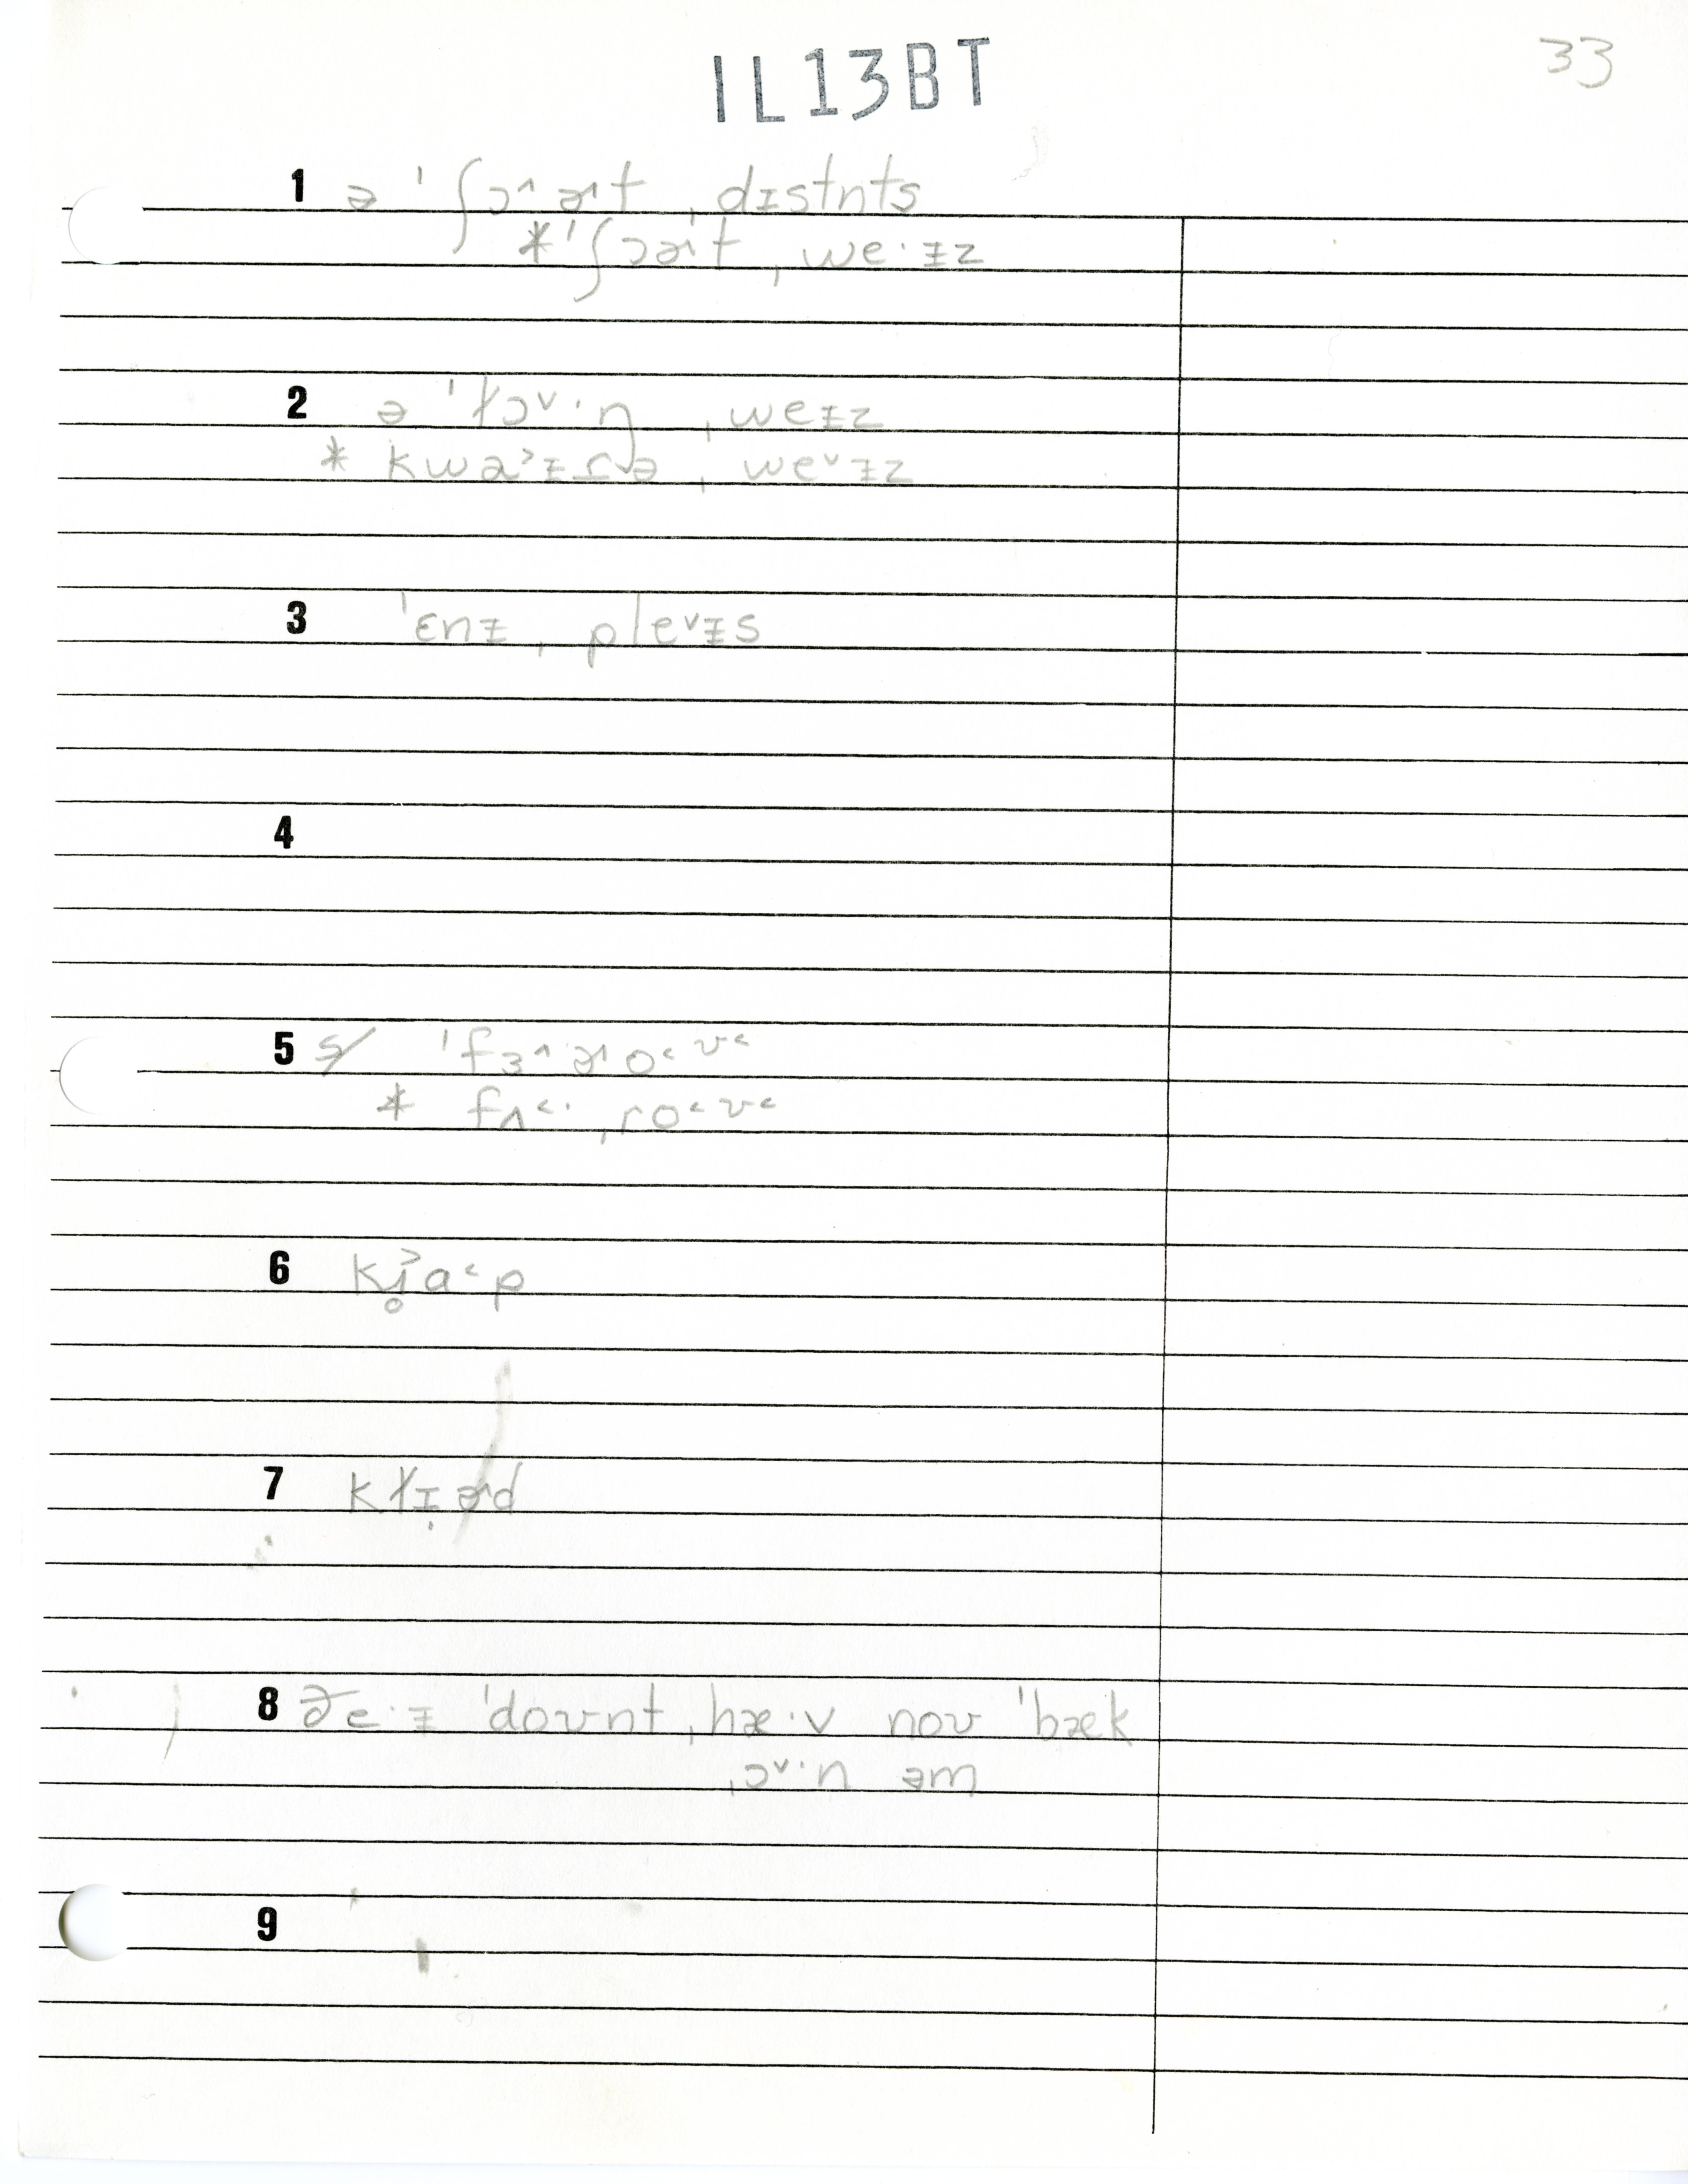 IL13BT
33
1 ə ˈʃɔ˄ɚt ˌdɪstnts
*ˈʃɔɚt ˌwe·ɪz
2 ə ˈɫɔ˅·ŋ ˌweɪz
* kwa˃ɪɾə ˌwe˅ɪz
3 ˈɛnɪ ˌple˅ɪs
4
5 s/ ˈfɜ˄ɚo˂ʊ˂
* fʌ˂· ˌro˂ʊ˂
6 kj̥˃a˂p
7 kɫɪ̣ɚd
8 ðe·ɪ ˈdoʊnt ˌhæ·v noʊ ˈbæk
ˌɔ˅·n əm
9